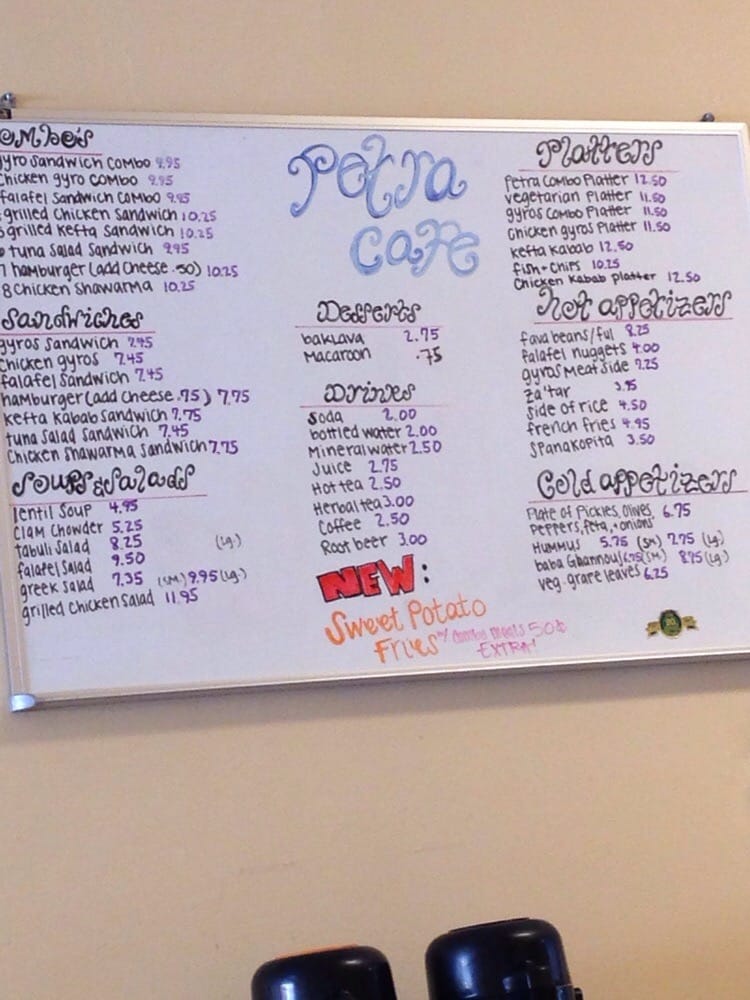 ombo's
yro Sandwich Combo 9.95
Chicken gyro Combo 9.95
falafel Sandwich Combo 9.95
grilled Chicken Sandwich 10.25
grilled Kefta Sandwich 10.25
tuna Salad Sandwich 9.95
7 hamburger (add Cheese .50) 10.25
8 Chicken Shawarma 10.25
Sandwiches
gyros Sandwich 7.45
Chicken gyros 7.45
falafel Sandwich 7.45
hamburger (add Cheese .75) 7.75
Kefta Kabab Sandwich 7.75
tuna Salad Sandwich 7.45
Chicken Shawarma Sandwich 7.75
Soups & Salads
lentil Soup 4.95
Clam Chowder 5.25
tabuli Salad 8.25 (lg.)
falafel Salad 9.50
greek Salad 7.35 (sm.) 9.95 (lg.)
grilled Chicken Salad 11.95
Petra
Cafe
Desserts
baklava 2.75
Macaroon .75
Drinks
Soda 2.00
bottled Water 2.00
Mineral water 2.50
Juice 2.75
Hot tea 2.50
Herbal tea 3.00
Coffee 2.50
Root beer 3.00
NEW:
Sweet Potato
Fries w/ Combo meals 50¢
EXTRA!
Platters
Petra Combo Platter 12.50
vegetarian Platter 11.50
gyros Combo Platter 11.50
Chicken gyros Platter 11.50
Kefta Kabab 12.50
fish + Chips 10.25
Chicken Kabab Platter 12.50
Hot appetizers
fava beans/ful 8.25
falafel nuggets 4.00
gyros Meat Side 7.25
Za'tar 3.95
Side of rice 4.50
french fries 4.95
Spanakopita 3.50
Cold appetizers
Plate of Pickles, Olives, 6.75
Peppers, feta, + onions
Hummus 5.75 (sm.) 7.75 (lg.)
baba Ghannouj 6.75 (sm.) 8.75 (lg.)
veg. grape leaves 6.25